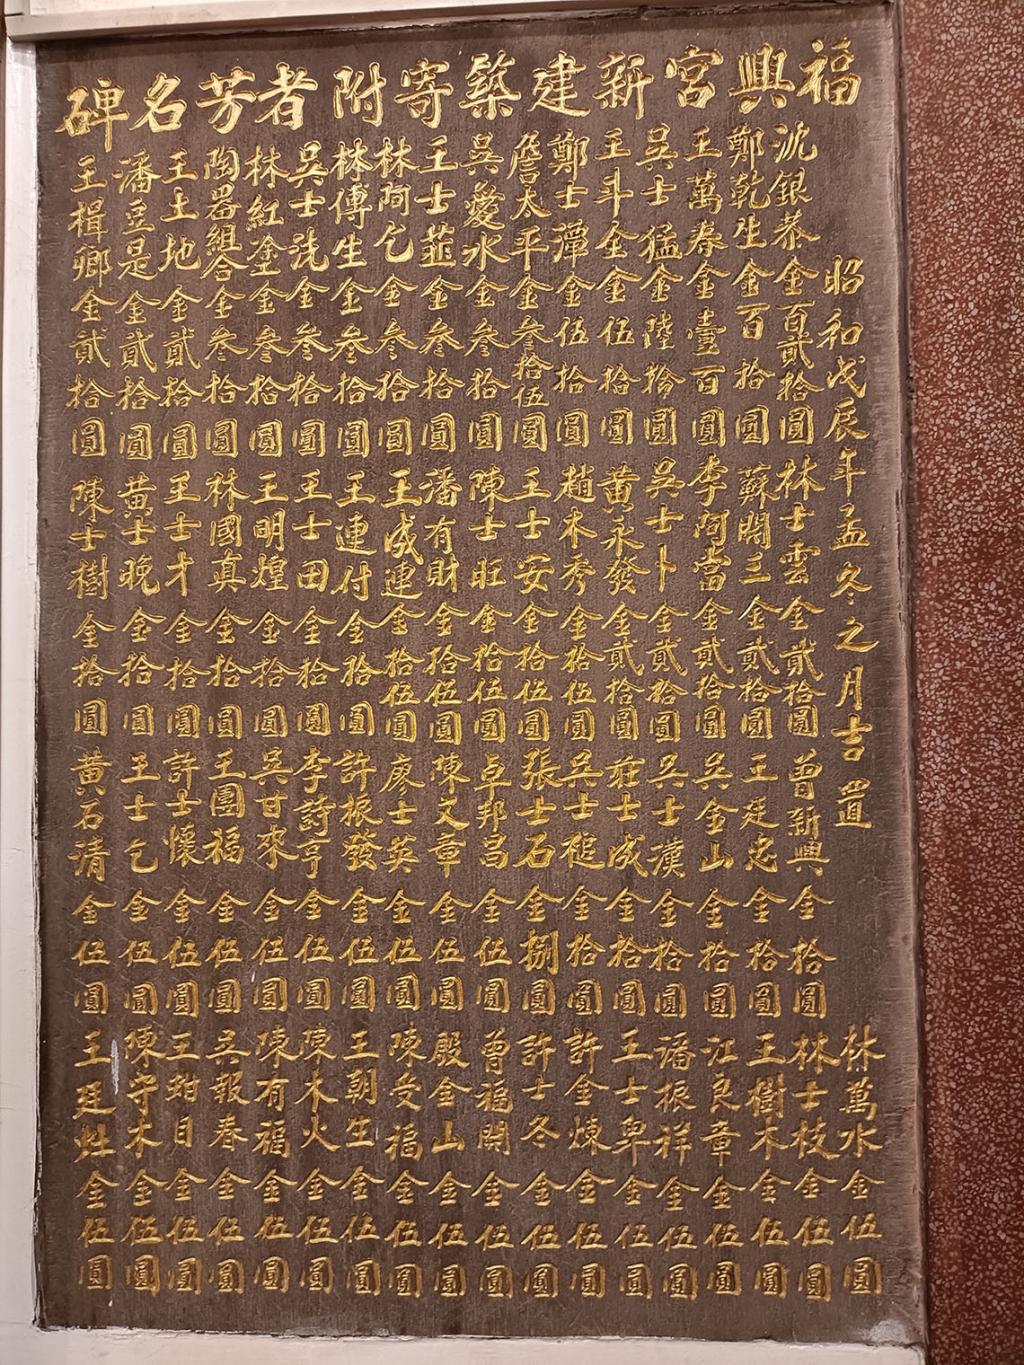 福興宮新建築寄附者芳名碑
昭和戊辰年孟冬之月吉置
沈銀恭金百貳拾圓
鄭乾生金百拾圓
王萬春金壹百圓
吳士猛金陸拾圓
王斗金金伍拾圓
鄭士潭金伍拾圓
詹太平金叁拾伍圓
吳愛水金叁拾圓
王士韮金叁拾圓
林阿乞金叁拾圓
林傳生金叁拾圓
吳士金叁拾圓
林紅塗金叁拾圓
陶器組合金叁拾圓
王土地金貳拾圓
潘豆是金貳拾圓
王楫鄉金貳拾圓
林士雲金貳拾圓
蘇開三金貳拾圓
李阿當金貳拾圓
吳士卜金貳拾圓
黃永發金貳拾圓
趙木秀金拾伍圓
王士安金拾伍圓
陳士旺金拾伍圓
潘有財金拾伍圓
王成連金拾伍圓
王連付金拾圓
王士田金拾圓
王明煌金拾圓
林國真金拾圓
王士才金拾圓
黃士晚金拾圓
陳士樹金拾圓
曾新興金拾圓
王廷忠金拾圓
吳金山金拾圓
吳士漢金拾圓
莊士成金拾圓
吳士槌金拾圓
張士石金捌圓
卓邦昌金伍圓
陳文章金伍圓
廖士英金伍圓
許振發金伍圓
李詩亨金伍圓
吳甘來金伍圓
王團福金伍圓
許士懷金伍圓
王士乞金伍圓
黃石清金伍圓
林萬水金伍圓
林士枝金伍圓
王樹木金伍圓
江良章金伍圓
潘振祥金伍圓
王士卑金伍圓
許金煉金伍圓
許士冬金伍圓
曾福開金伍圓
殷金山金伍圓
陳受福金伍圓
王朝生金伍圓
陳木火金伍圓
陳有福金伍圓
吳報春金伍圓
王目金伍圓
陳守木金伍圓
王廷灶金伍圓